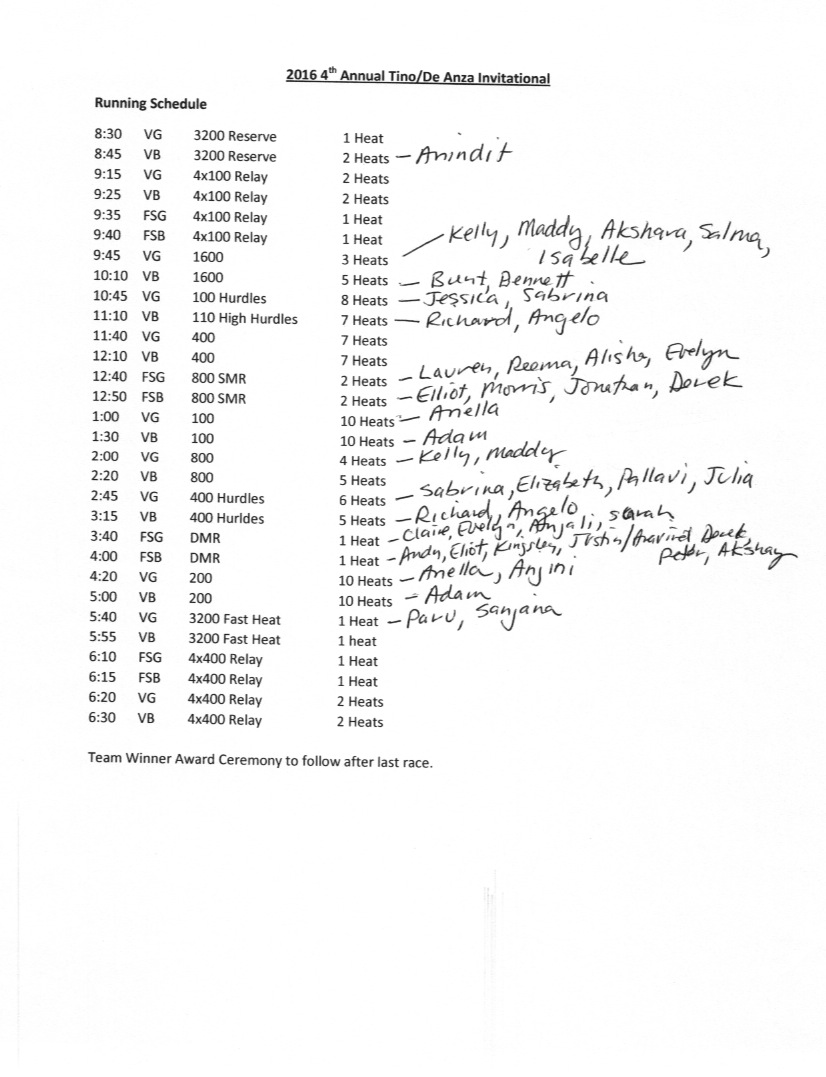 2016 4th Annual Tino/De Anza Invitational
Running Schedule
8:30 VG 3200 Reserve 1 Heat
8:45 VB 3200 Reserve 2 Heats – Anindit
9:15 VG 4x100 Relay 2 Heats
9:25 VB 4x100 Relay 2 Heats
9:35 FSG 4x100 Relay 1 Heat
9:40 FSB 4x100 Relay 1 Heat
9:45 VG 1600 3 Heats – Kelly, Maddy, Akshara, Salma,
Isabelle
10:10 VB 1600 5 Heats – Bunt, Bennett
10:45 VG 100 Hurdles 8 Heats – Jessica, Sabrina
11:10 VB 110 High Hurdles 7 Heats – Richard, Angelo
11:40 VG 400 7 Heats
12:10 VB 400 7 Heats
12:40 FSG 800 SMR 2 Heats – Lauren, Reema, Alisha, Evelyn
12:50 FSB 800 SMR 2 Heats – Elliot, Morris, Jonathan, Derek
1:00 VG 100 10 Heats – Anella
1:30 VB 100 10 Heats – Adam
2:00 VG 800 4 Heats – Kelly, Maddy
2:20 VB 800 5 Heats
2:45 VG 400 Hurdles 6 Heats – Sabrina, Elizabeth, Pallavi, Julia
3:15 VB 400 Hurldes 5 Heats – Richard, Angelo
3:40 FSG DMR 1 Heat – Claire, Evelyn, Anjali, Sarah
4:00 FSB DMR 1 Heat – Andy, Eliot, Kingsley, Justin/Aravind Derek,
Peter, Akshay
4:20 VG 200 10 Heats – Anella, Anjini
5:00 VB 200 10 Heats – Adam
5:40 VG 3200 Fast Heat 1 Heat – Paru, Sanjana
5:55 VB 3200 Fast Heat 1 heat
6:10 FSG 4x400 Relay 1 Heat
6:15 FSB 4x400 Relay 1 Heat
6:20 VG 4x400 Relay 2 Heats
6:30 VB 4x400 Relay 2 Heats
Team Winner Award Ceremony to follow after last race.